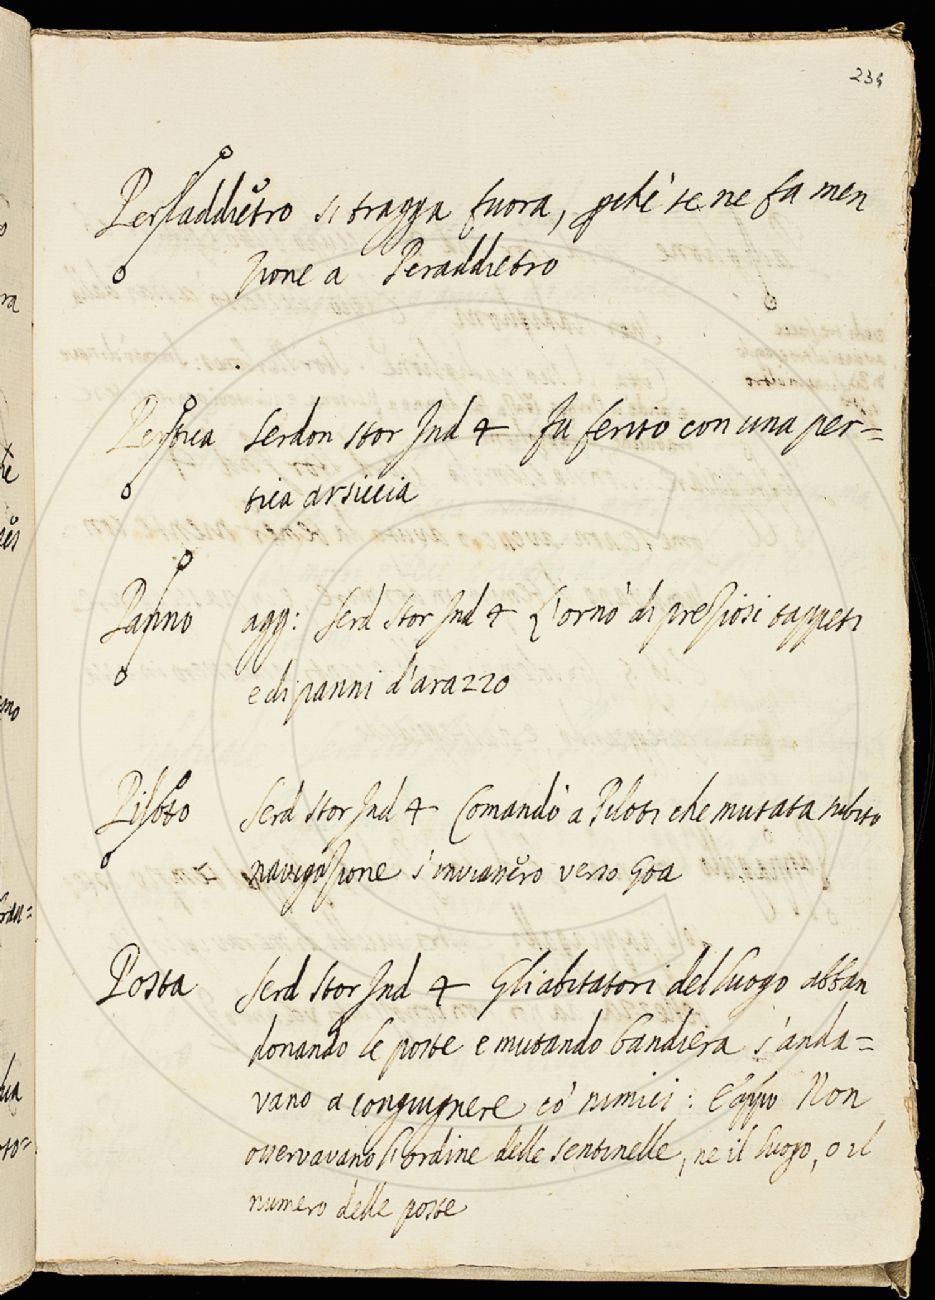 234
Peraddietro si tragga fuora, pchè se ne fa men
zione a Peraddietro
Pertica Serdon Stor Ind 4 Fu ferito con una per=
tica arsiccia
Panno agg: Serd Stor Ind 4 L'ornò di preziosi tappeti
e di panni d'arazzo
Piloto Serd Stor Ind 4 Comandò a Piloti che mutata subito
navigazione s'inviassero verso Goa
Posta Serd Stor Ind 4 Gli abitatori del luogo abban
donando le poste e mutando bandiera s'anda=
vano a congiugnere co' nimici: E appo Non
osservavano l'ordine delle sentinelle, ne il luogo, o il
numero delle poste